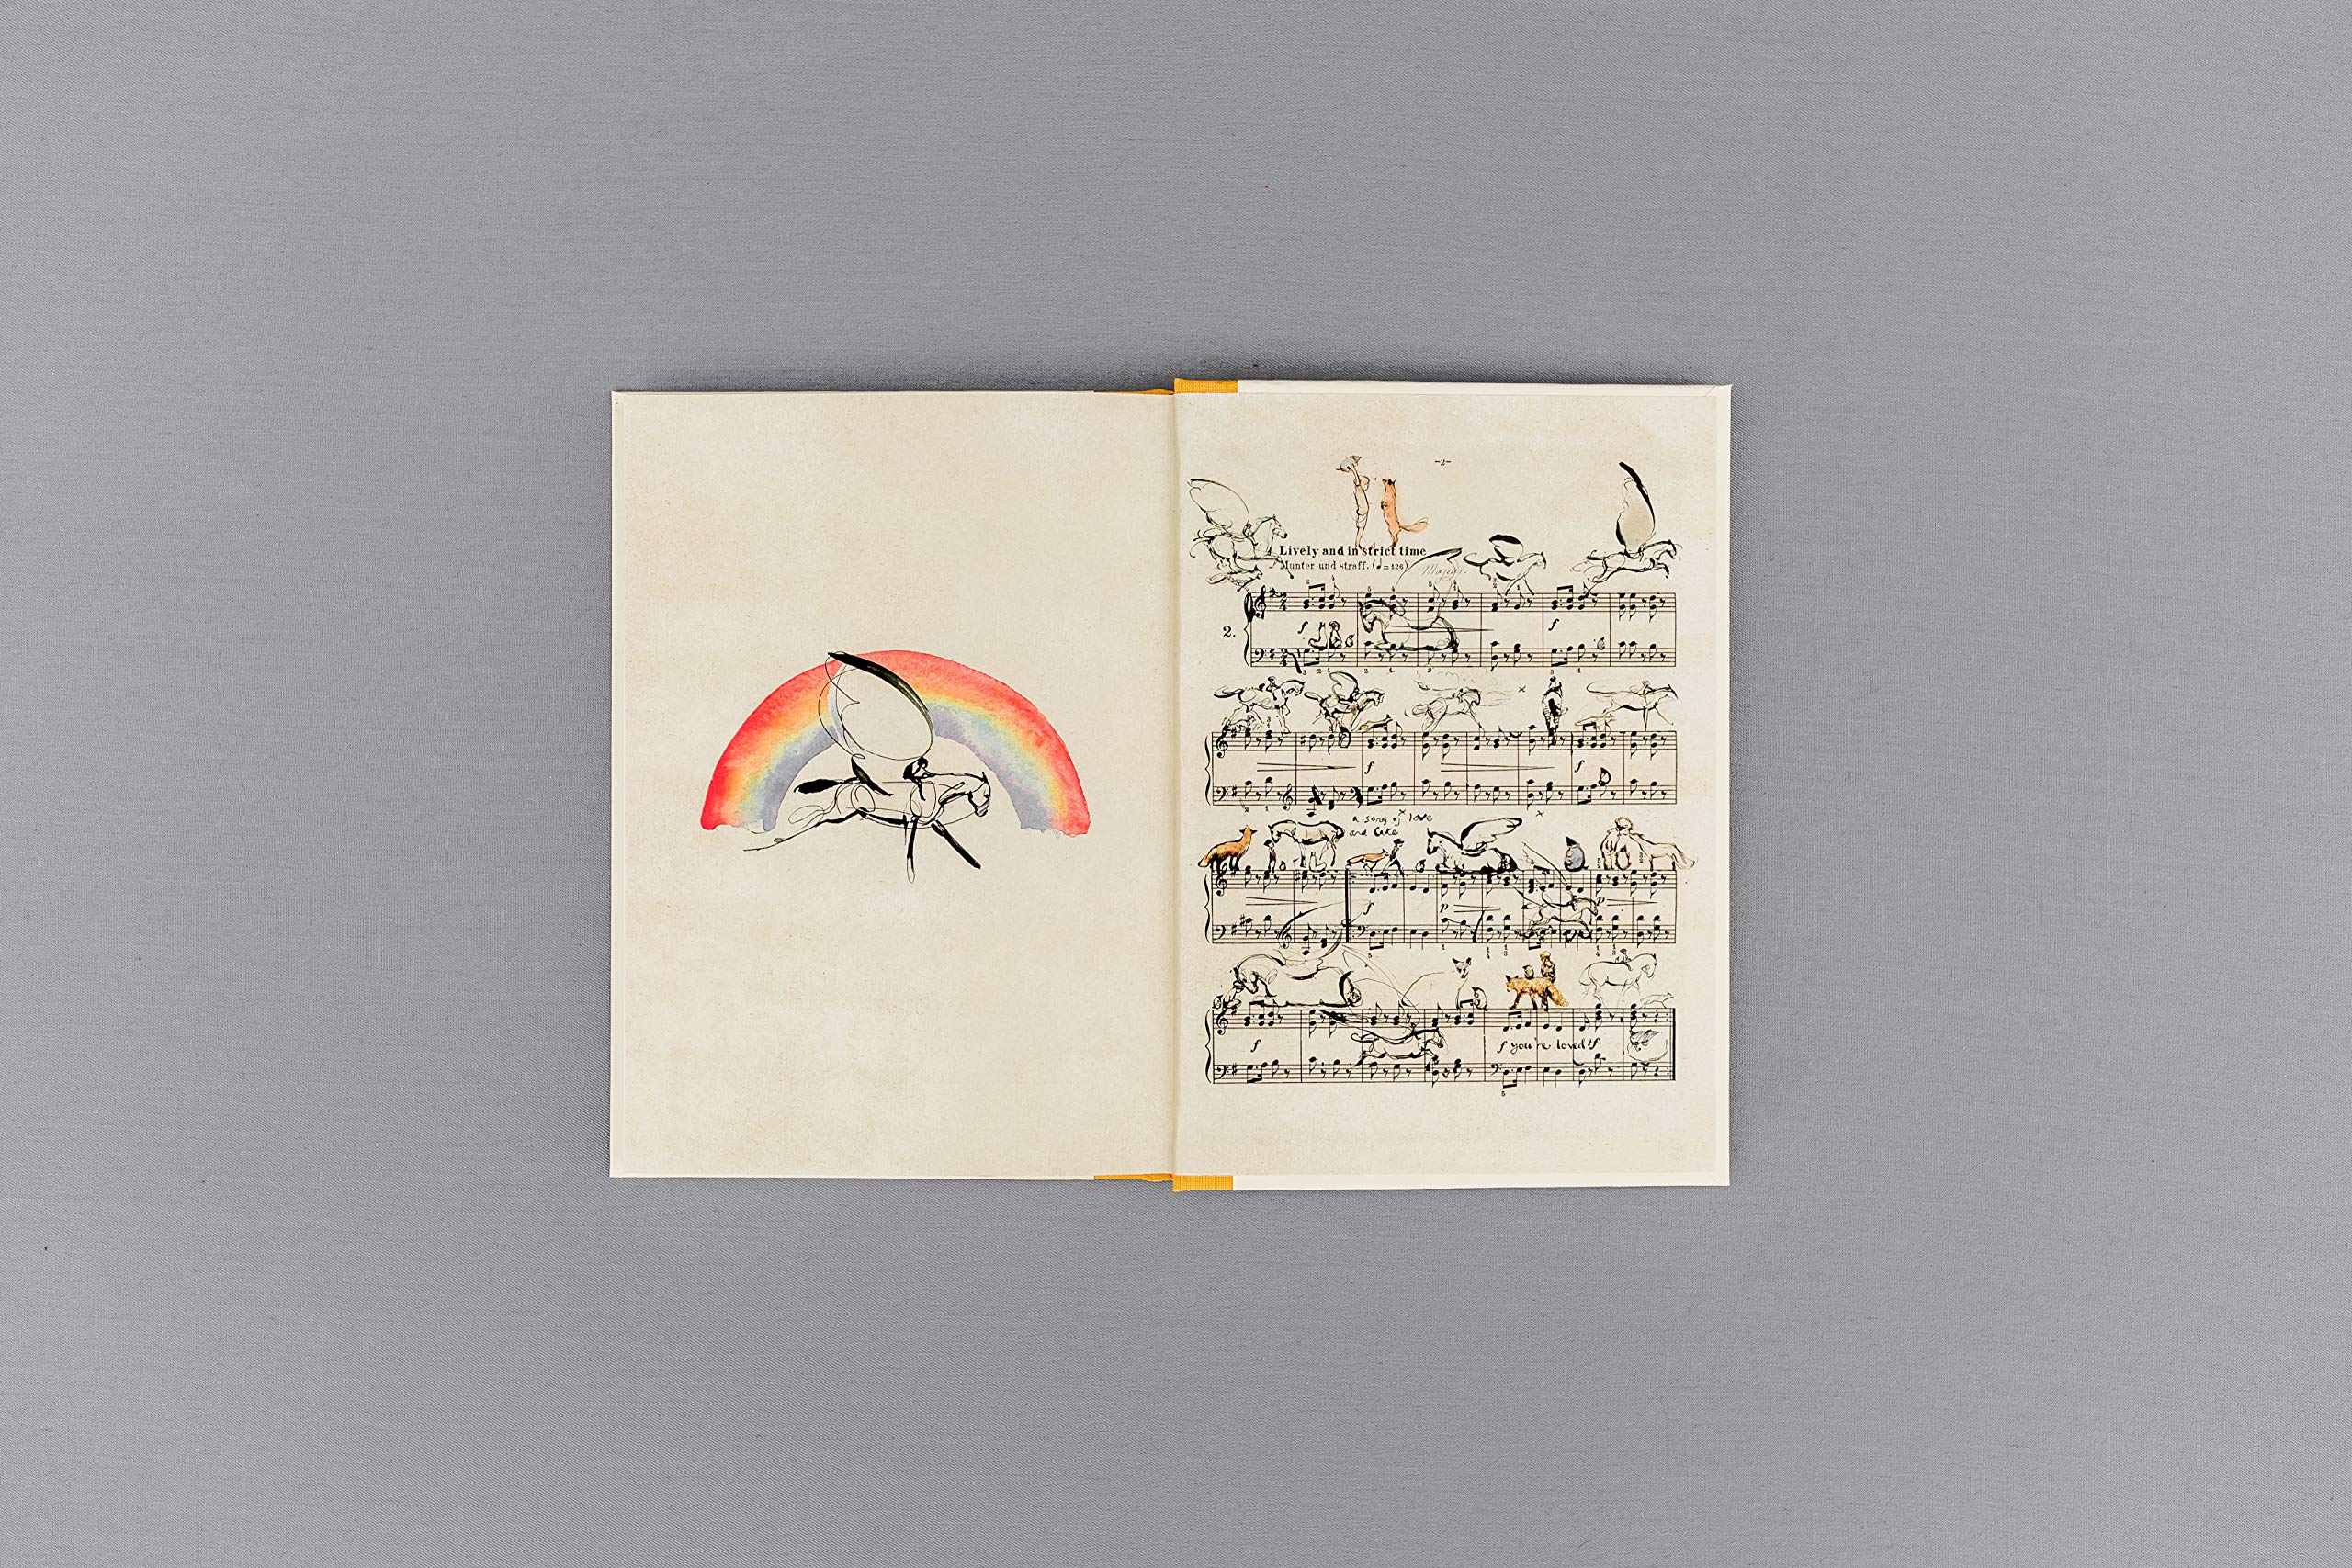 -2-
Lively and in strict time
Munter und straff. (♩=126)
2.
a song of love
and cake
you're loved